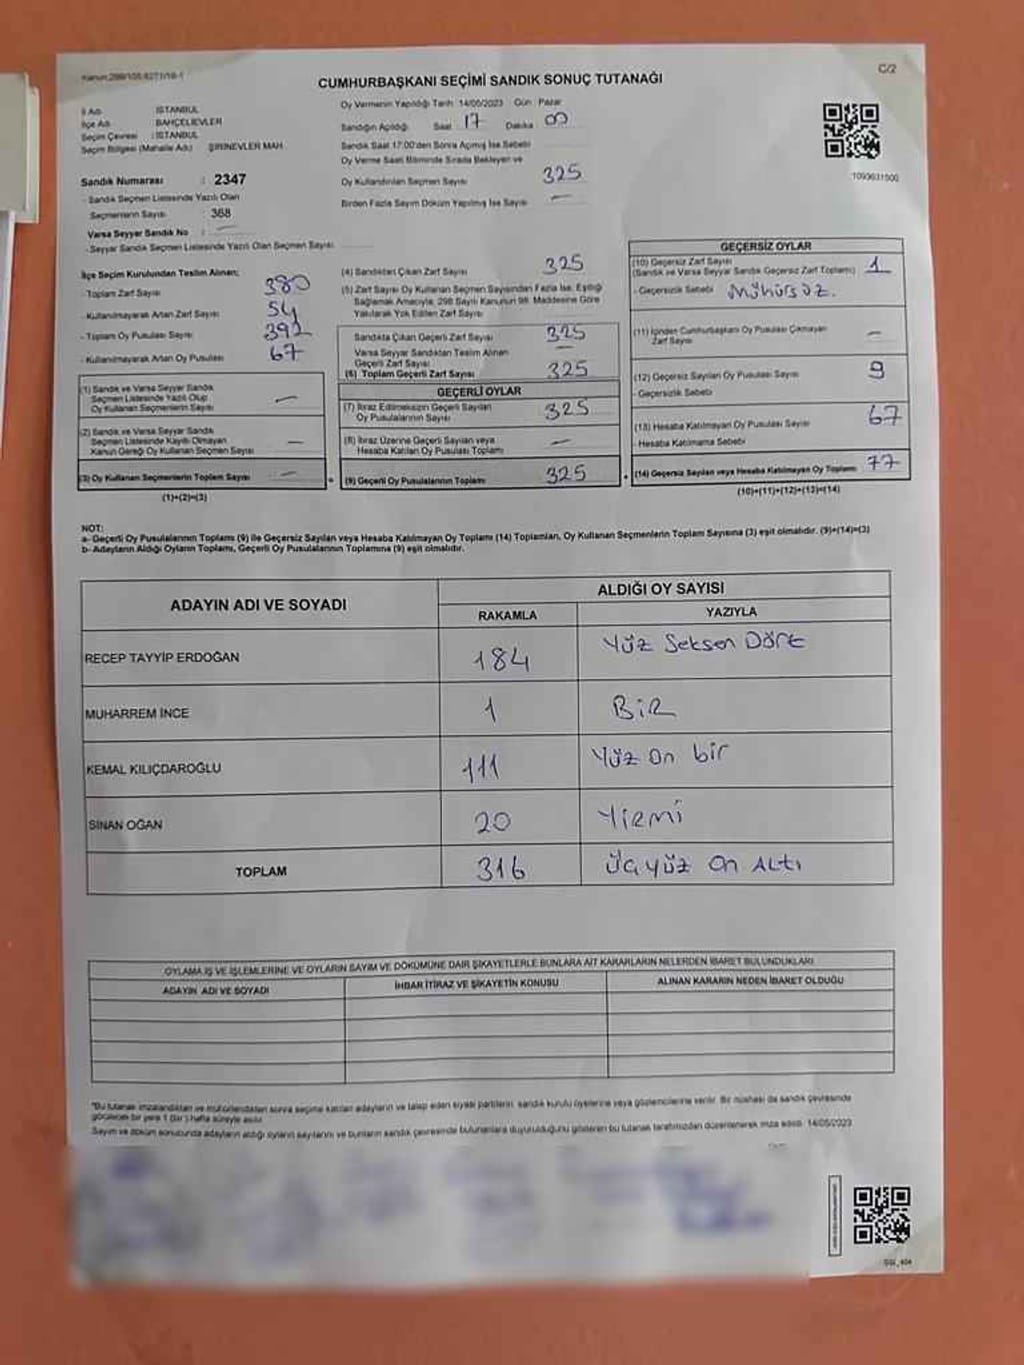 Kanun:298/105,6271/18-1
C/2
CUMHURBAŞKANI SEÇİMİ SANDIK SONUÇ TUTANAĞI
İl Adı : İSTANBUL
İlçe Adı : BAHÇELİEVLER
Seçim Çevresi : İSTANBUL
Seçim Bölgesi (Mahalle Adı) : ŞİRİNEVLER MAH.
Sandık Numarası : 2347
- Sandık Seçmen Listesinde Yazılı Olan
Seçmenlerin Sayısı : 368
Varsa Seyyar Sandık No : —
- Seyyar Sandık Seçmen Listesinde Yazılı Olan Seçmen Sayısı
Oy Vermenin Yapıldığı Tarih 14/05/2023 Gün Pazar
Sandığın Açıldığı Saat 17 Dakika 00
Sandık Saat 17:00'den Sonra Açılmış İse Sebebi
Oy Verme Saati Bitiminde Sırada Bekleyen ve
Oy Kullandırılan Seçmen Sayısı 325
Birden Fazla Sayım Döküm Yapılmış İse Sayısı —
1093631500
İlçe Seçim Kurulundan Teslim Alınan;
- Toplam Zarf Sayısı 380
- Kullanılmayarak Artan Zarf Sayısı 54
- Toplam Oy Pusulası Sayısı 392
- Kullanılmayarak Artan Oy Pusulası 67
(1) Sandık ve Varsa Seyyar Sandık
Seçmen Listesinde Yazılı Olup
Oy Kullanan Seçmenlerin Sayısı —
(2) Sandık ve Varsa Seyyar Sandık
Seçmen Listesinde Kayıtlı Olmayan
Kanun Gereği Oy Kullanan Seçmen Sayısı —
(3) Oy Kullanan Seçmenlerin Toplam Sayısı —
(1)+(2)=(3)
(4) Sandıktan Çıkan Zarf Sayısı 325
(5) Zarf Sayısı Oy Kullanan Seçmen Sayısından Fazla İse, Eşitliği
Sağlamak Amacıyla, 298 Sayılı Kanunun 98. Maddesine Göre
Yakılarak Yok Edilen Zarf Sayısı
Sandıkta Çıkan Geçerli Zarf Sayısı 325
Varsa Seyyar Sandıktan Teslim Alınan
Geçerli Zarf Sayısı —
(6) Toplam Geçerli Zarf Sayısı 325
GEÇERLİ OYLAR
(7) İtiraz Edilmeksizin Geçerli Sayılan
Oy Pusulalarının Sayısı 325
(8) İtiraz Üzerine Geçerli Sayılan veya
Hesaba Katılan Oy Pusulası Toplamı —
(9) Geçerli Oy Pusulalarının Toplamı 325
GEÇERSİZ OYLAR
(10) Geçersiz Zarf Sayısı
(Sandık ve Varsa Seyyar Sandık Geçersiz Zarf Toplamı) 1
- Geçersizlik Sebebi Mühürsüz.
(11) İçinden Cumhurbaşkanı Oy Pusulası Çıkmayan
Zarf Sayısı —
(12) Geçersiz Sayılan Oy Pusulası Sayısı 9
- Geçersizlik Sebebi
(13) Hesaba Katılmayan Oy Pusulası Sayısı 67
- Hesaba Katılmama Sebebi
(14) Geçersiz Sayılan veya Hesaba Katılmayan Oy Toplamı 77
(10)+(11)+(12)+(13)=(14)
NOT:
a- Geçerli Oy Pusulalarının Toplamı (9) ile Geçersiz Sayılan veya Hesaba Katılmayan Oy Toplamı (14) Toplamları, Oy Kullanan Seçmenlerin Toplam Sayısına (3) eşit olmalıdır. (9)+(14)=(3)
b- Adayların Aldığı Oyların Toplamı, Geçerli Oy Pusulalarının Toplamına (9) eşit olmalıdır.
ADAYIN ADI VE SOYADI
ALDIĞI OY SAYISI
RAKAMLA YAZIYLA
RECEP TAYYİP ERDOĞAN 184 Yüz Seksen Dört
MUHARREM İNCE 1 Bir
KEMAL KILIÇDAROĞLU 111 Yüz On bir
SİNAN OĞAN 20 Yirmi
TOPLAM 316 Üçyüz On Altı
OYLAMA İŞ VE İŞLEMLERİNE VE OYLARIN SAYIM VE DÖKÜMÜNE DAİR ŞİKAYETLERLE BUNLARA AİT KARARLARIN NELERDEN İBARET BULUNDUKLARI
ADAYIN ADI VE SOYADI İHBAR İTİRAZ VE ŞİKAYETİN KONUSU ALINAN KARARIN NEDEN İBARET OLDUĞU
*Bu tutanak imzalandıktan ve mühürlendikten sonra seçime katılan adayların ve talep eden siyasi partilerin, sandık kurulu üyelerine veya gözlemcilerine verilir. Bir nüshası da sandık çevresinde
görülecek bir yere 1 (bir) hafta süreyle asılır.
Sayım ve döküm sonucunda adayların aldığı oyların sayılarını ve bunların sandık çevresinde bulunanlara duyurulduğunu gösteren bu tutanak tarafımızdan düzenlenerek imza edildi. 14/05/2023